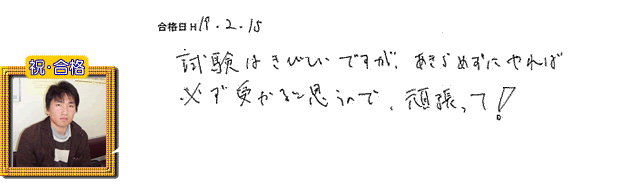 合格日H19.2.15
試験はきびしいですが、あきらめずにやれば
必ず受かると思うので、頑張って！
祝・合格